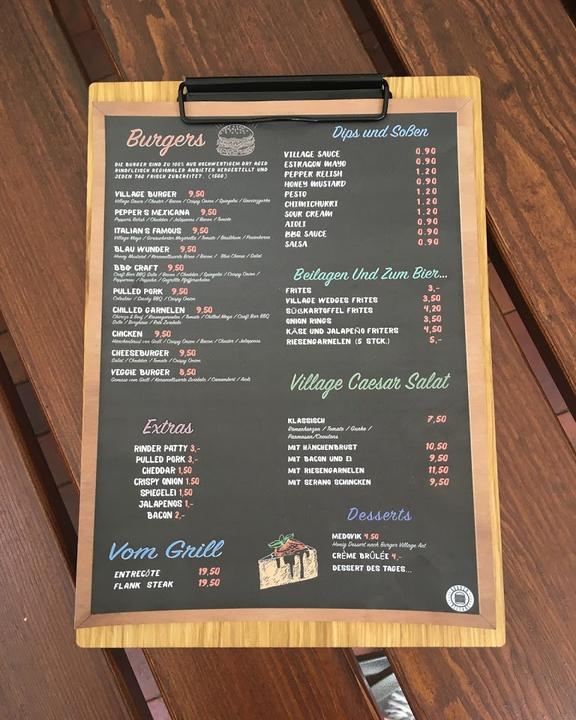 Burgers
DIE BURGER SIND ZU 100% AUS HOCHWERTIGEM DRY AGED
RINDFLEISCH REGIONALER ANBIETER HERGESTELLT UND
JEDEN TAG FRISCH ZUBEREITET. (150G)
VILLAGE BURGER 9,50
Village Sauce / Chester / Bacon / Crispy Onion / Spiegelei / Gewürzgurke
PEPPER'S MEXICANA 9,50
Peppers Relish / Cheddar / Jalapenos / Bacon / Tomate
ITALIAN'S FAMOUS 9,50
Village Mayo / Geräucherter Mozzarella / Tomate / Basilikum / Pinienkerne
BLAU WUNDER 9,50
Honey Mustard / Karamellisierte Birne / Bacon / Blue Cheese / Salat
BBQ CRAFT 9,50
Craft Bier BBQ Soße / Bacon / Cheddar / Spiegelei / Crispy Onion /
PULLED PORK 9,50
Coleslaw / Smoky BBQ / Crispy Onion
CHILLED GARNELEN 9,50
CHICKEN 9,50
CHEESEBURGER 9,50
Salat / Cheddar / Tomate / Crispy Onion
VEGGIE BURGER 8,50
Gemüse vom Grill / Karamellisierte Zwiebeln / Camembert / Aioli
Extras
RINDER PATTY 3,-
PULLED PORK 3,-
CHEDDAR 1,50
CRISPY ONION 1,50
SPIEGELEI 1,50
JALAPENOS 1,-
BACON 2,-
Vom Grill
ENTRECÔTE 19,50
FLANK STEAK 19,50
Dips und Soßen
VILLAGE SAUCE 0.90
ESTRAGON MAYO 0.90
PEPPER RELISH 1.20
HONEY MUSTARD 0.90
PESTO 1.20
CHIMICHURRI 1.20
SOUR CREAM 1.20
AIOLI 0.90
BBQ SAUCE 0.90
SALSA 0.90
Beilagen Und Zum Bier...
FRITES 3,-
VILLAGE WEDGES FRITES 3,50
SÜßKARTOFFEL FRITES 4,20
ONION RINGS 3,50
KÄSE UND JALAPEÑO FRITERS 4,50
RIESENGARNELEN (5 STCK.) 5,-
Village Caesar Salat
KLASSISCH 7,50
Römerherzen / Tomate / Gurke /
Parmesan/Croutons
MIT HÄNCHENBRUST 10,50
MIT BACON UND EI 9,50
MIT RIESENGARNELEN 11,50
MIT SERANO SCHINCKEN 9,50
Desserts
MEDOVIK 4.50
Honig Dessert nach Burger Village Art
CRÈME BRÛLÉE 4,-
DESSERT DES TAGES...